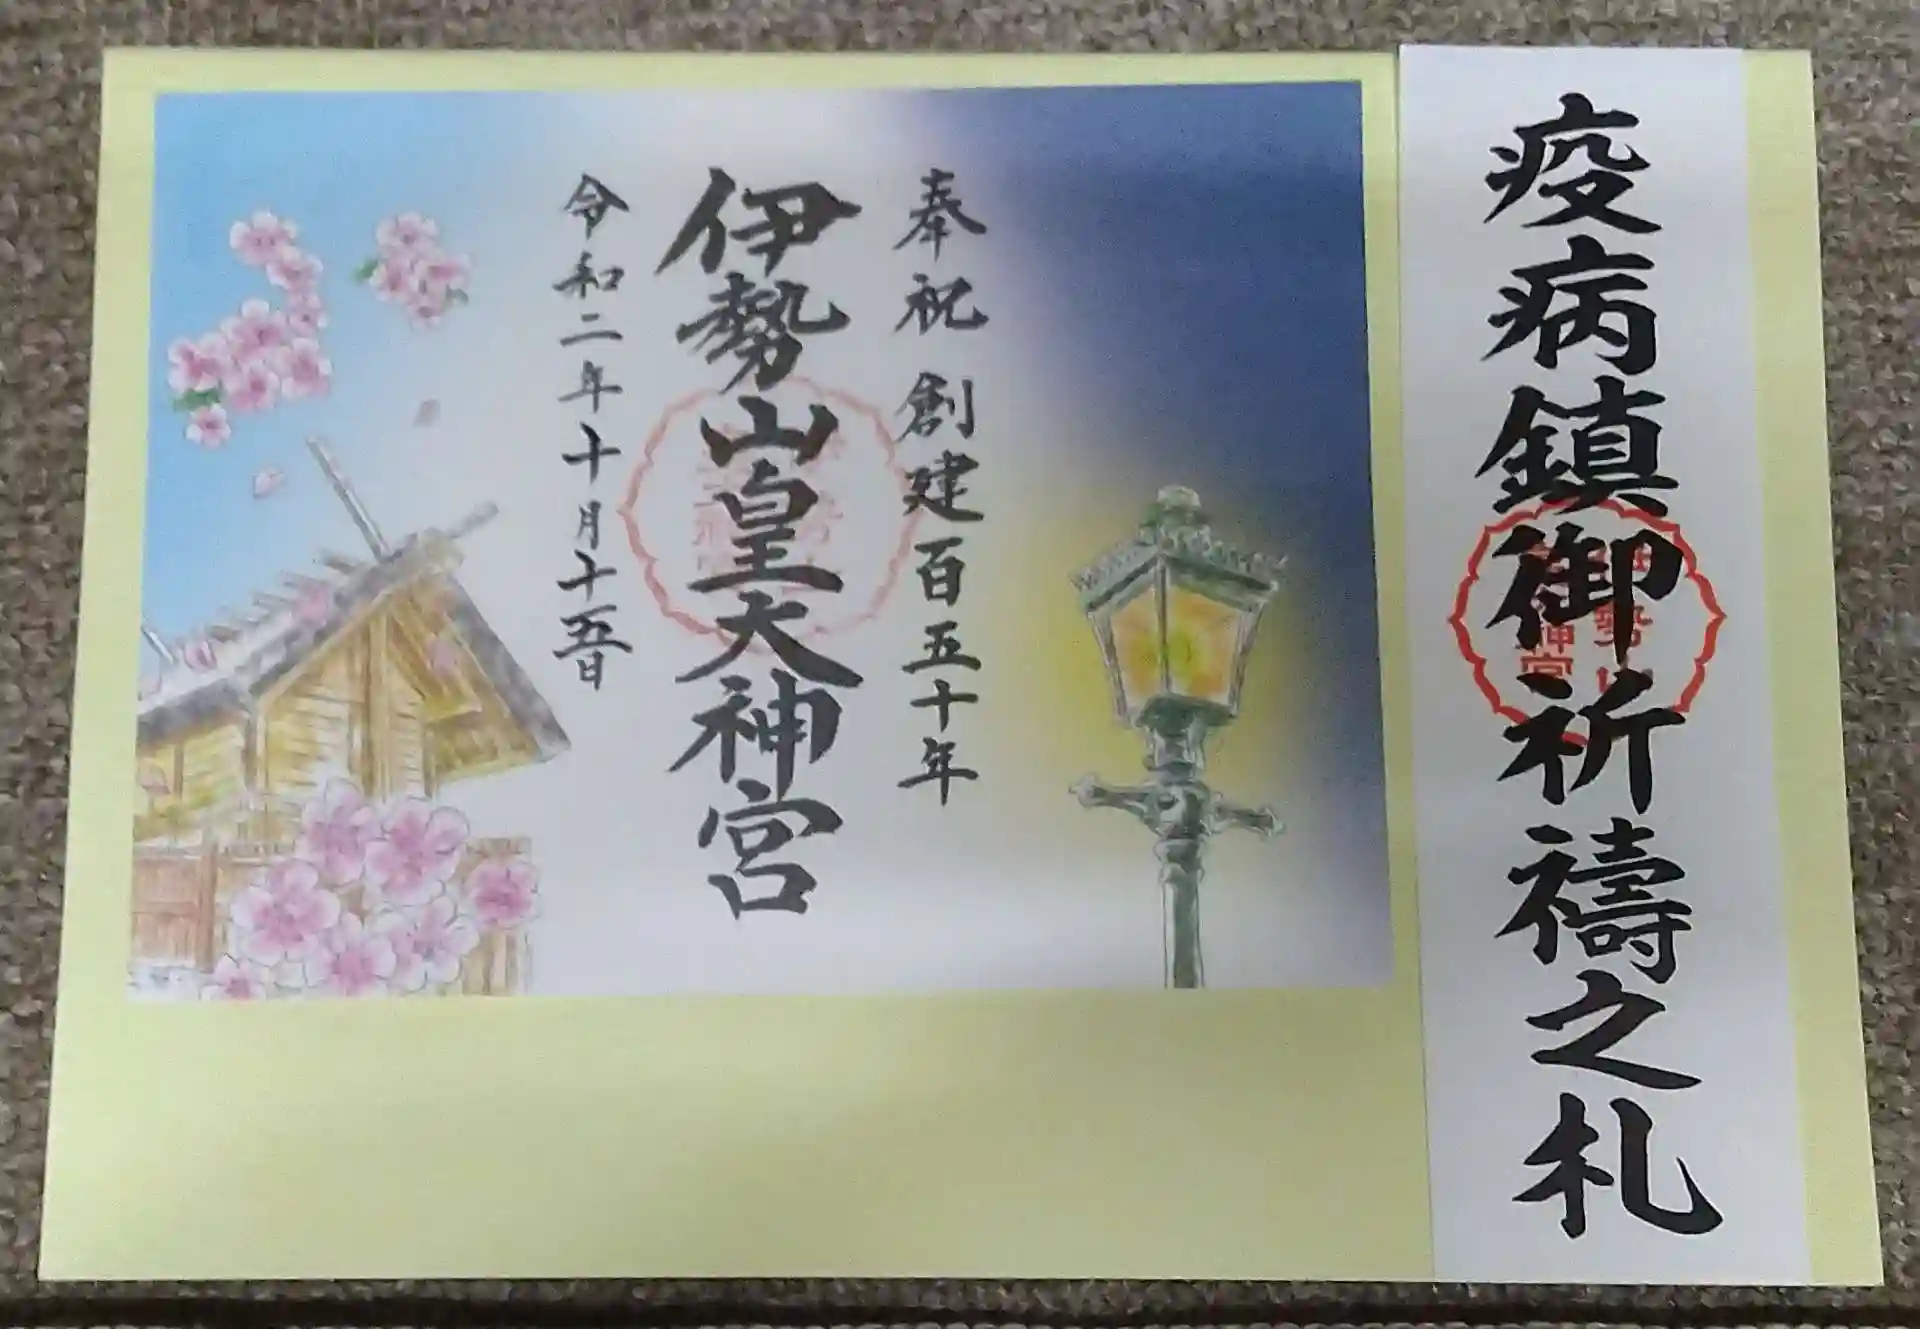 疫病鎮御祈禱之札
奉祝 創建百五十年
伊勢山皇大神宮
令和二年十月十五日